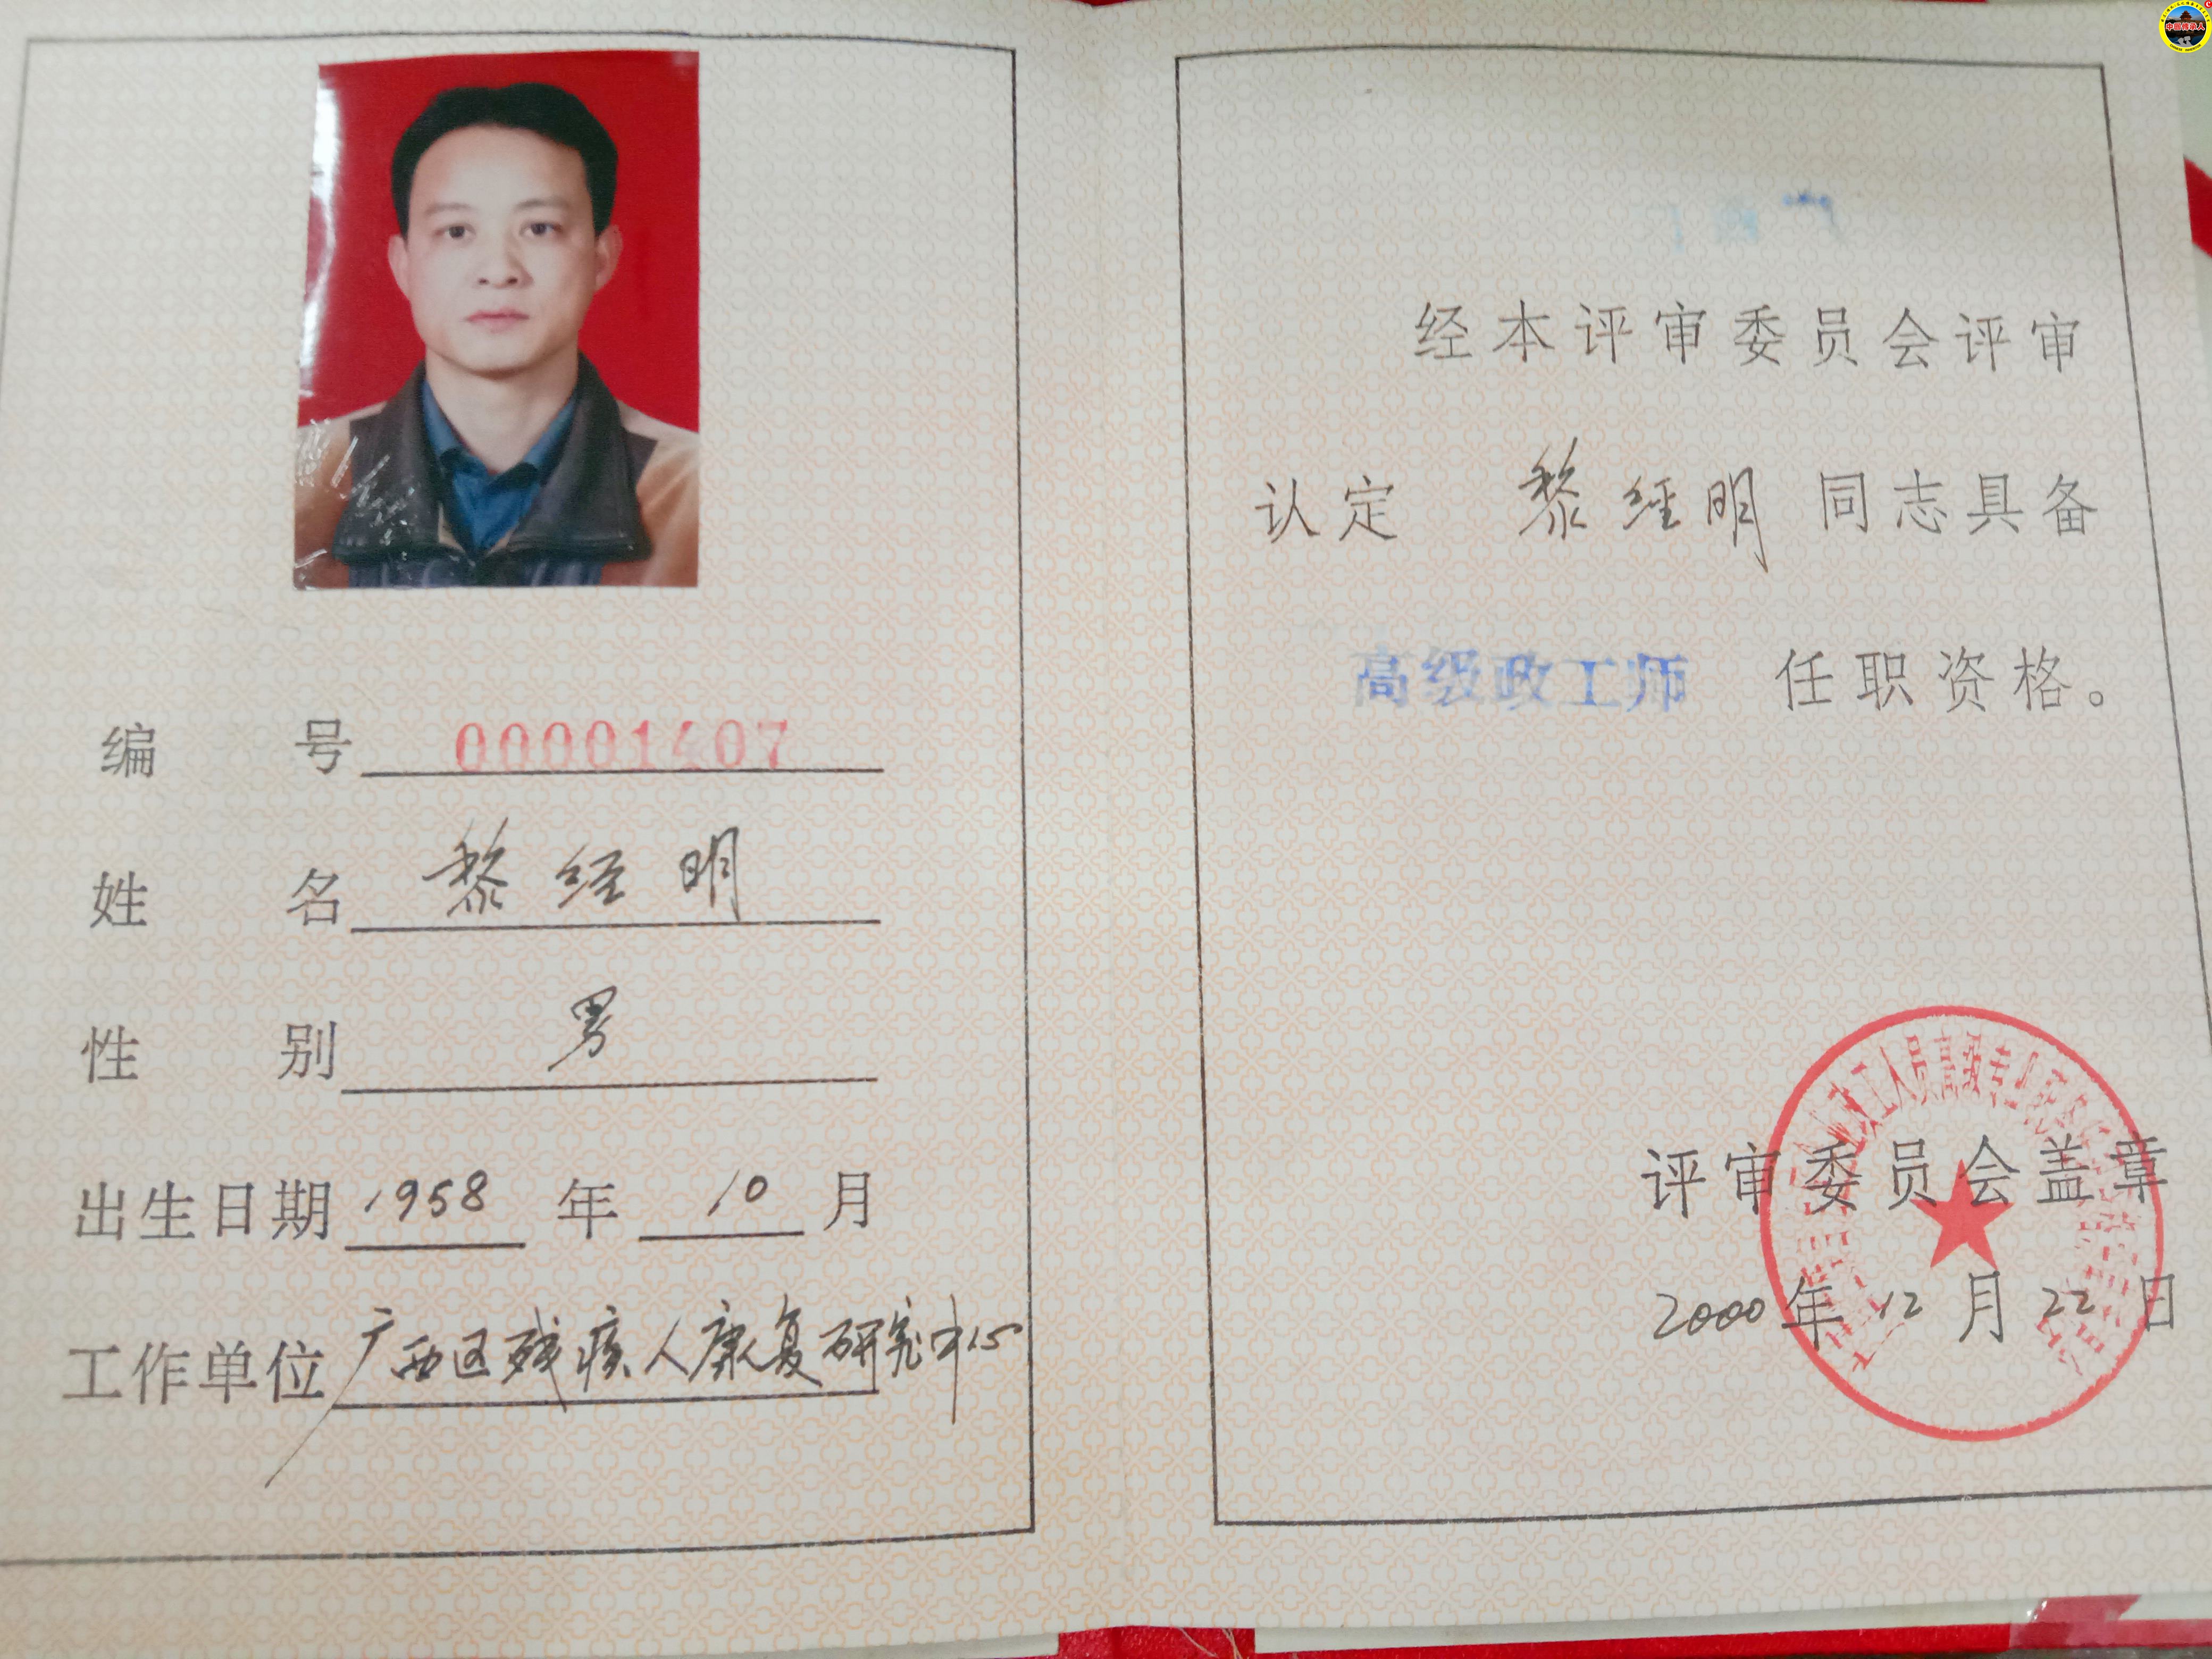 编号 00001407
姓名 黎经明
性别 男
出生日期 1958 年 10 月
工作单位 广西区残疾人康复研究中心
经本评审委员会评审
认定 黎经明 同志具备
高级政工师 任职资格。
评审委员会盖章
2000年12月22日